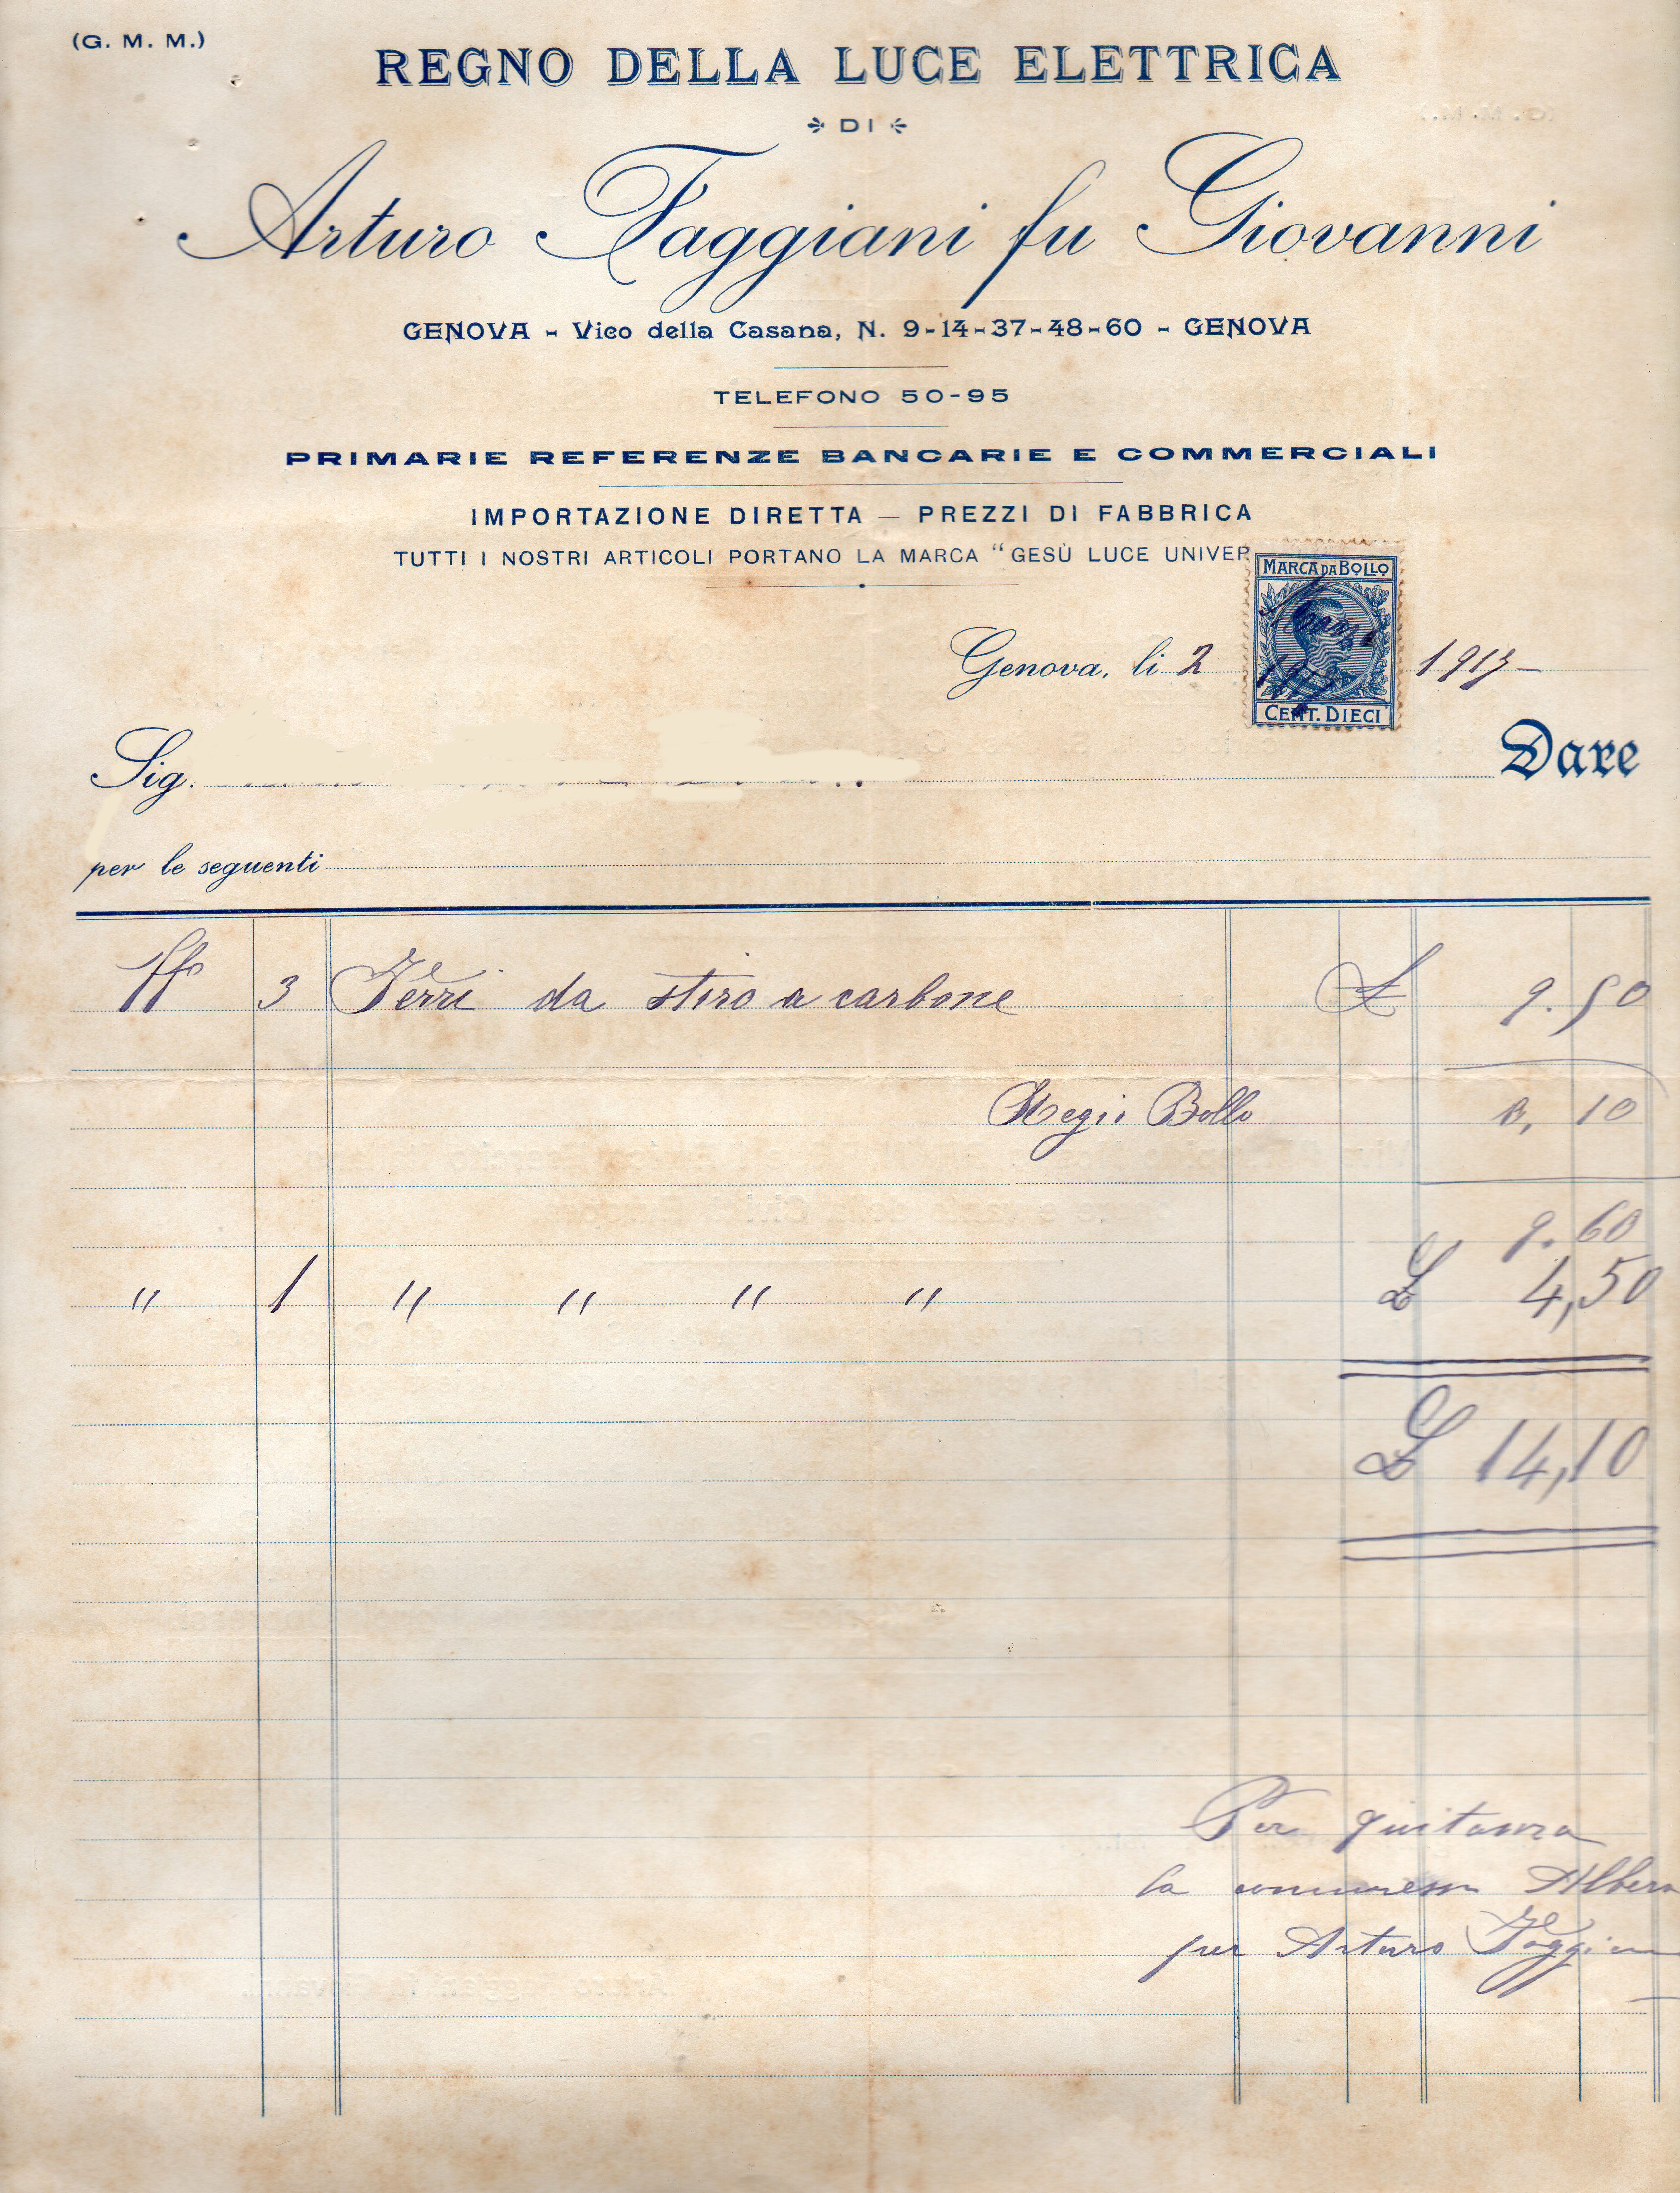 (G. M. M.)
REGNO DELLA LUCE ELETTRICA
DI
Arturo Faggiani fu Giovanni
GENOVA - Vico della Casana, N. 9-14-37-48-60 - GENOVA
TELEFONO 50-95
PRIMARIE REFERENZE BANCARIE E COMMERCIALI
IMPORTAZIONE DIRETTA — PREZZI DI FABBRICA
TUTTI I NOSTRI ARTICOLI PORTANO LA MARCA “GESÙ LUCE UNIVER
MARCA DA BOLLO
Marzo
CENT. DIECI
Genova, li 2 1913
Sig. Dare
per le seguenti
3 Ferri da stiro a carbone £ 9.50
Regio Bollo 0,10
9.60
" 1 " " " " £ 4,50
£ 14,10
Per quitanza
la commessa Albera
per Arturo Faggiani